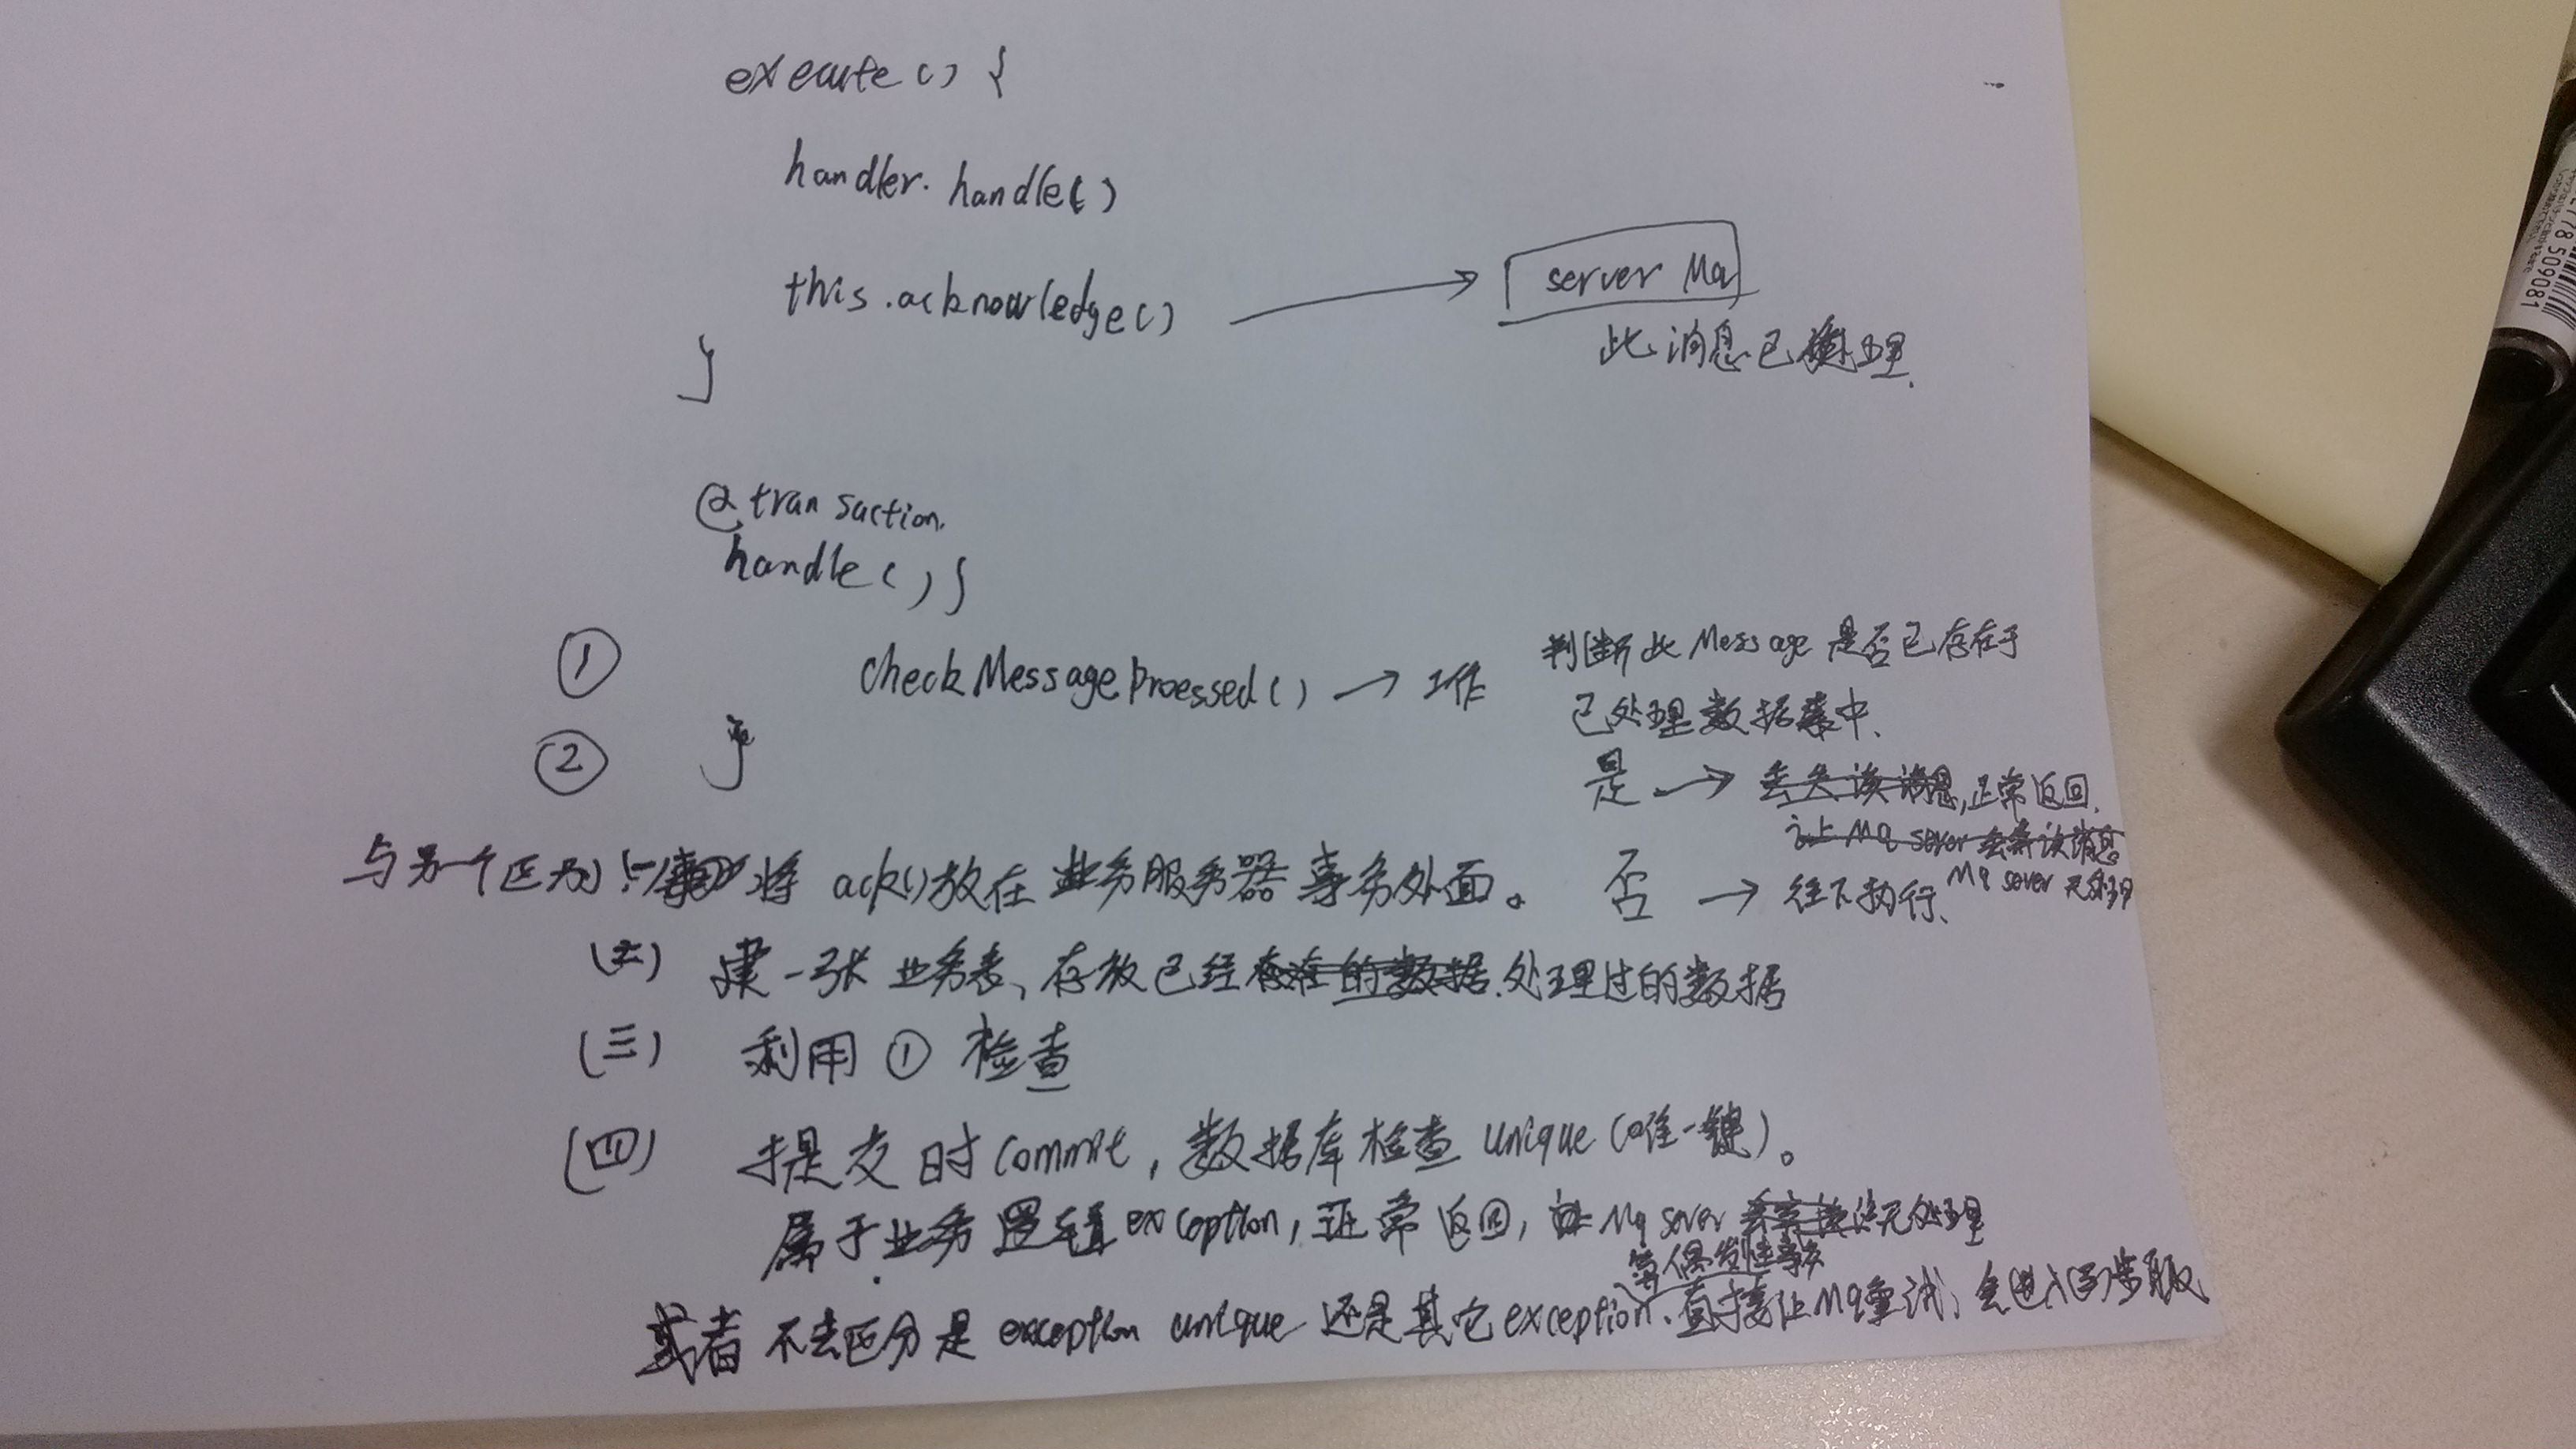 execute() {
handler.handle()
this.acknowledge()
server Mq
此消息已处理.
}
@transaction.
handle() }
① checkMessageProessed() → 工作
判断此Message是否已存在于
已处理数据集中.
② }
是 → 丢失该消息, 正常返回.
让 Mq server 丢弃该消息
Mq sever 无处理
否 → 往下执行.
与另一个区别: 将 ack()放在业务服务器事务外面。
(二) 建一张业务表、存放已经存在的数据.处理过的数据
(三) 利用 ① 检查
(四) 提交时commit, 数据库检查 unique (唯一键)。
属于业务逻辑exception, 正常返回, Mq sever 无处理
等偶发性事务
或者 不去区分是 exception unique 还是其它exception.直接让Mq重试, 会进入(三)步骤
509081